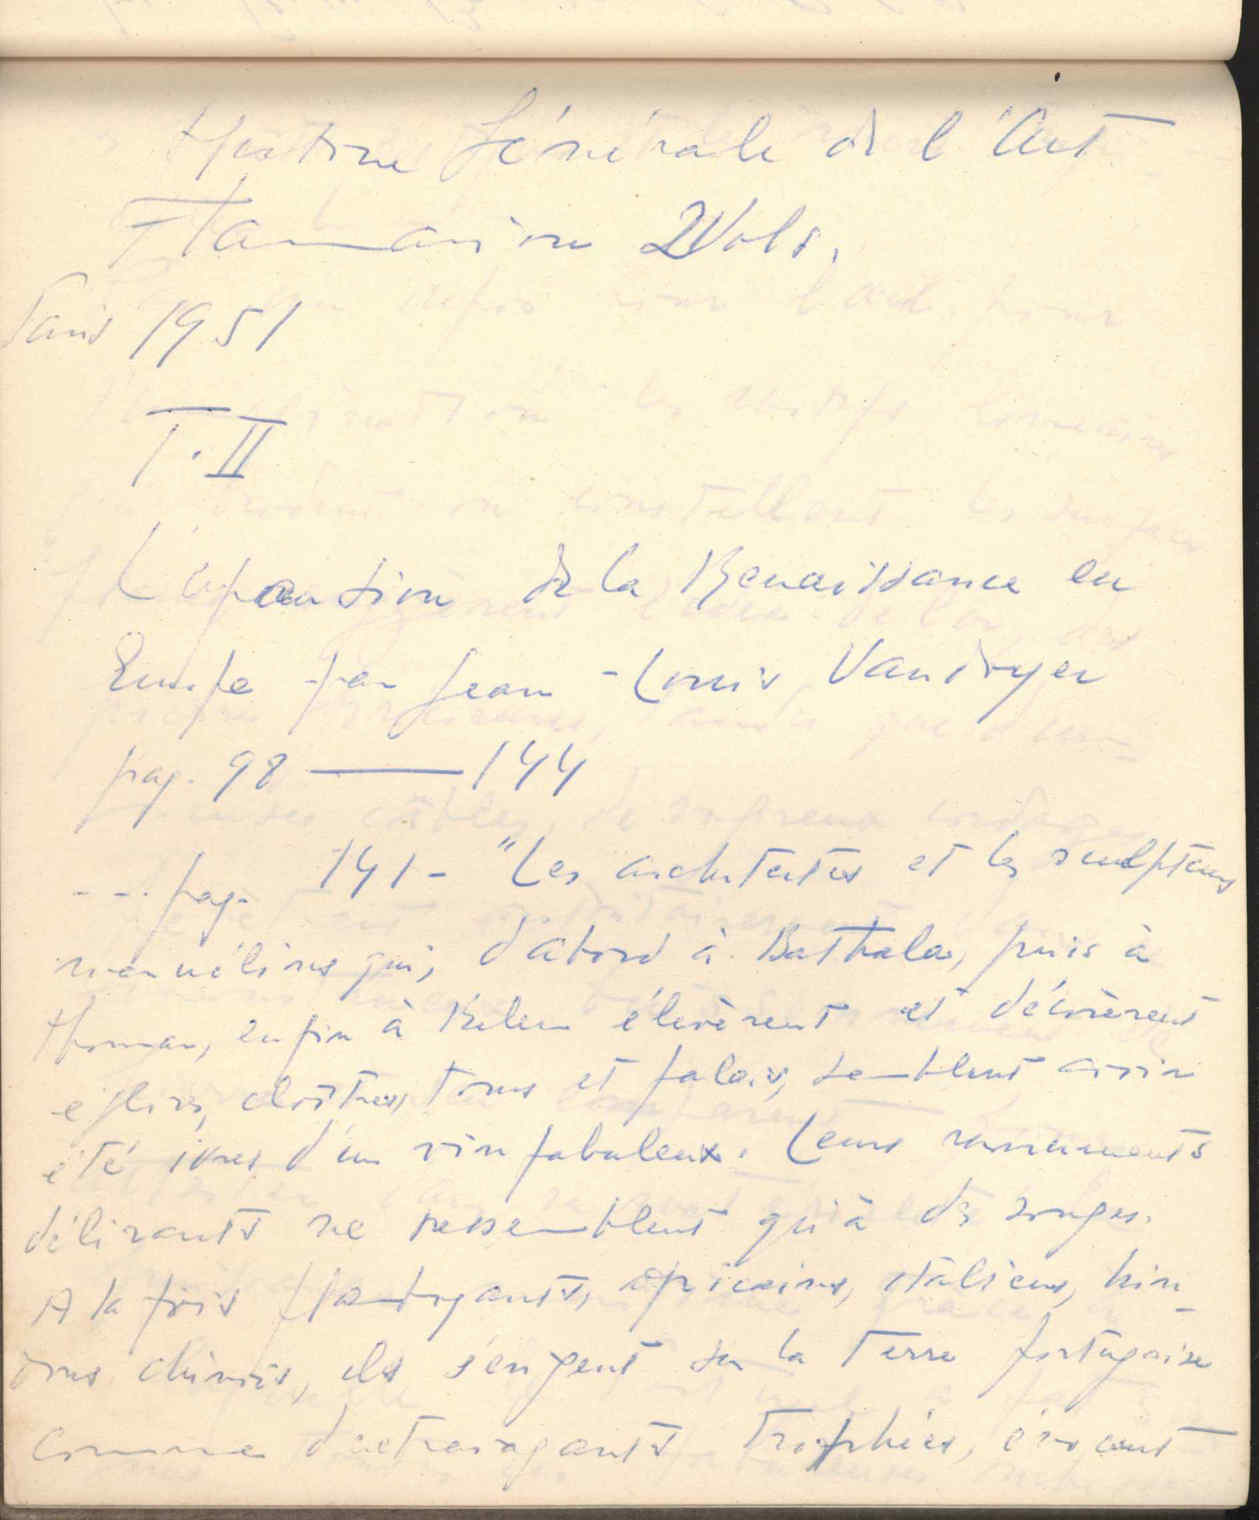 Histoire Générale de l'Art
Flammarion 2 Vols.
Paris 1951
T. II
L'expansion de la Renaissance en
Europe par Jean-Louis Vaudoyer
pag. 98 — 144
--- pag. 141 - "Les architectes et les sculpteurs
manuélins qui, d'abord à Bathala, puis à
Thomar, enfin à Belem élevèrent et décorèrent
eglises, cloîtres, tours et palais, semblent avoir
été ivres d'un vin fabuleux. Leurs monuments
délirants ne ressemblent qu'à des songes.
A la fois flamboyants, africains, italiens, hin-
dous chinois, ils s'érigent sur la terre portugaise
comme d'extravagants trophées, évoquant